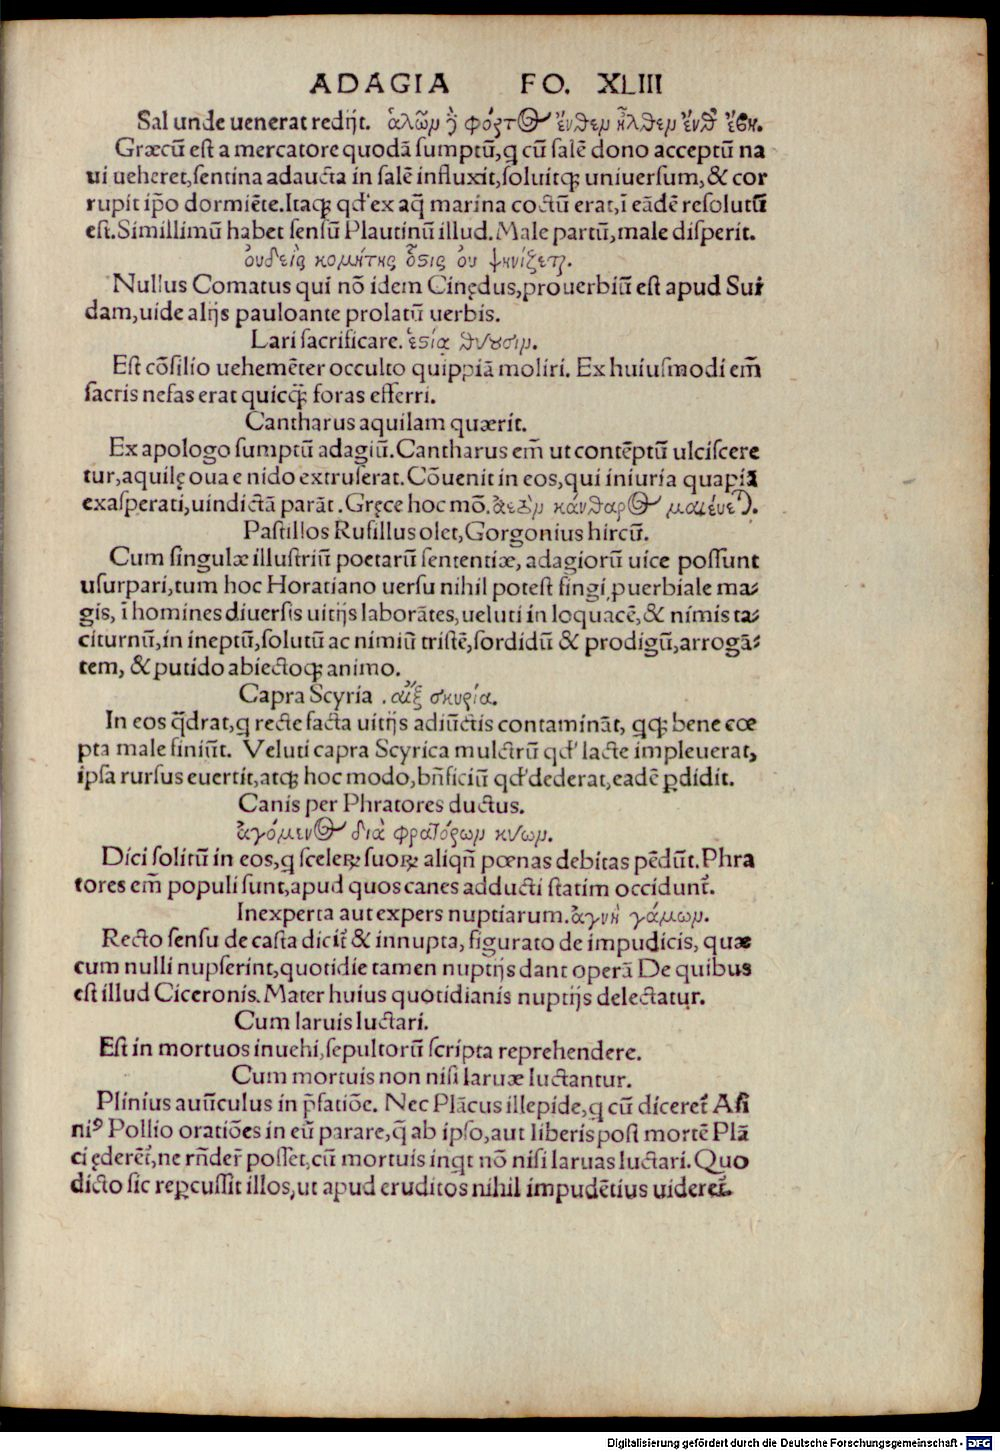 ADAGIA FO. XLIII
Sal unde uenerat redijt. ἁλῶν ὁ φόρτος ἔνθεν ἦλθεν ἔνθ' ἔβη.
Græcū est a mercatore quodā sumptū, q cū salē dono acceptū na
ui ueheret, sentina adaucta in salē influxit, soluitq; uniuersum, & cor
rupit ip̄o dormiēte. Itaq; qd' ex aq̄ marina coctū erat, ī eādē resolutū
est. Simillimū habet sensū Plautinū illud. Male partū, male disperit.
ουδεὶς κομήτης ὅστις ου ψηνίζεται.
Nullus Comatus qui nō idem Cinędus, prouerbiū est apud Sui
dam, uide alijs pauloante prolatū uerbis.
Lari sacrificare. ἑστίᾳ θύουσιν.
Est cōsilio uehemēter occulto quippiā moliri. Ex huiusmodi em̄
sacris nefas erat quicq̄; foras efferri.
Cantharus aquilam quærit.
Ex apologo sumptū adagiū. Cantharus em̄ ut contēptū ulciscere
tur, aquilę oua e nido extruserat. Cōuenit in eos, qui iniuria quapiā
exasperati, uindictā parāt. Gręce hoc mō. ἀετὸν κάνθαρος μαιεύεται.
Pastillos Rufillus olet, Gorgonius hircū.
Cum singulæ illustriū poetarū sententiæ, adagiorū uice possunt
usurpari, tum hoc Horatiano uersu nihil potest fingi ꝓuerbiale ma-
gis, ī homines diuersis uitijs laborātes, ueluti in loquacē, & nimis ta-
citurnū, in ineptū, solutū ac nimiū tristē, sordidū & prodigū, arrogā-
tem, & putido abiectoq; animo.
Capra Scyria. αἲξ σκυρία.
In eos q̄drat, q recte facta uitijs adiūctis contamināt, qq; bene cœ
pta male finiūt. Veluti capra Scyrica mulctrū qd' lacte impleuerat,
ipsa rursus euertit, atq; hoc modo, bn̄ficiū qd' dederat, eadē ꝑdidit.
Canis per Phratores ductus.
ἀγόμενος διὰ φρατόρων κύων.
Dici solitū in eos, q sceleꝝ suoꝝ aliqn̄ pœnas debitas pēdūt. Phra
tores em̄ populi sunt, apud quos canes adducti statim occidunt̄.
Inexperta aut expers nuptiarum. ἁγνὴ γάμων.
Recto sensu de casta dicit̄ & innupta, figurato de impudicis, quæ
cum nulli nupserint, quotidie tamen nuptijs dant operā De quibus
est illud Ciceronis. Mater huius quotidianis nuptijs delectatur.
Cum laruis luctari.
Est in mortuos inuehi, sepultorū scripta reprehendere.
Cum mortuis non nisi laruæ luctantur.
Plinius auūculus in p̄fatiōe. Nec Plācus illepide, q cū diceret̄ Asi
niꝰ Pollio oratiōes in eū parare, q̄ ab ipso, aut liberis post mortē Plā
ci ęderēt̄, ne rn̄der̄ posset, cū mortuis inqt nō nisi laruas luctari. Quo
dicto sic reꝑcussit illos, ut apud eruditos nihil impudētius uideret̄.
Digitalisierung gefördert durch die Deutsche Forschungsgemeinschaft - DFG